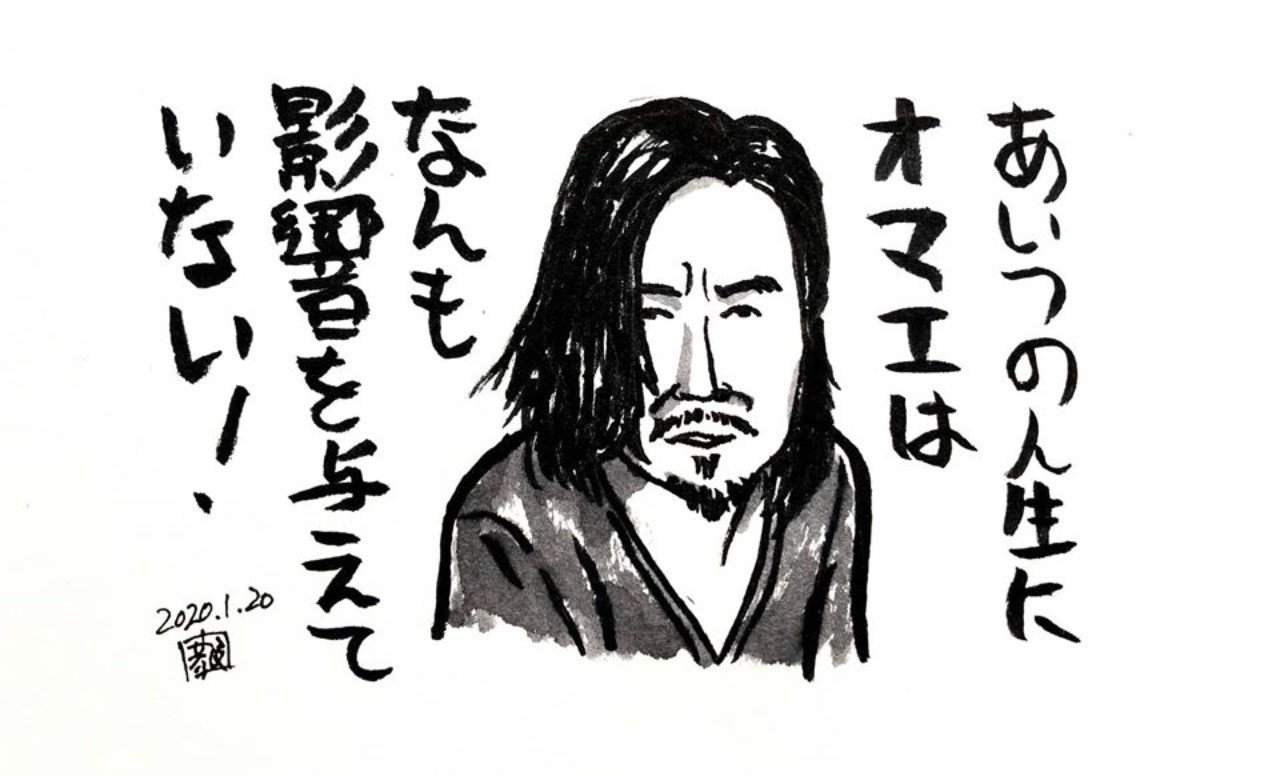 あいつの人生に
オマエは
なんも
影響を与えて
いない!
2020.1.20